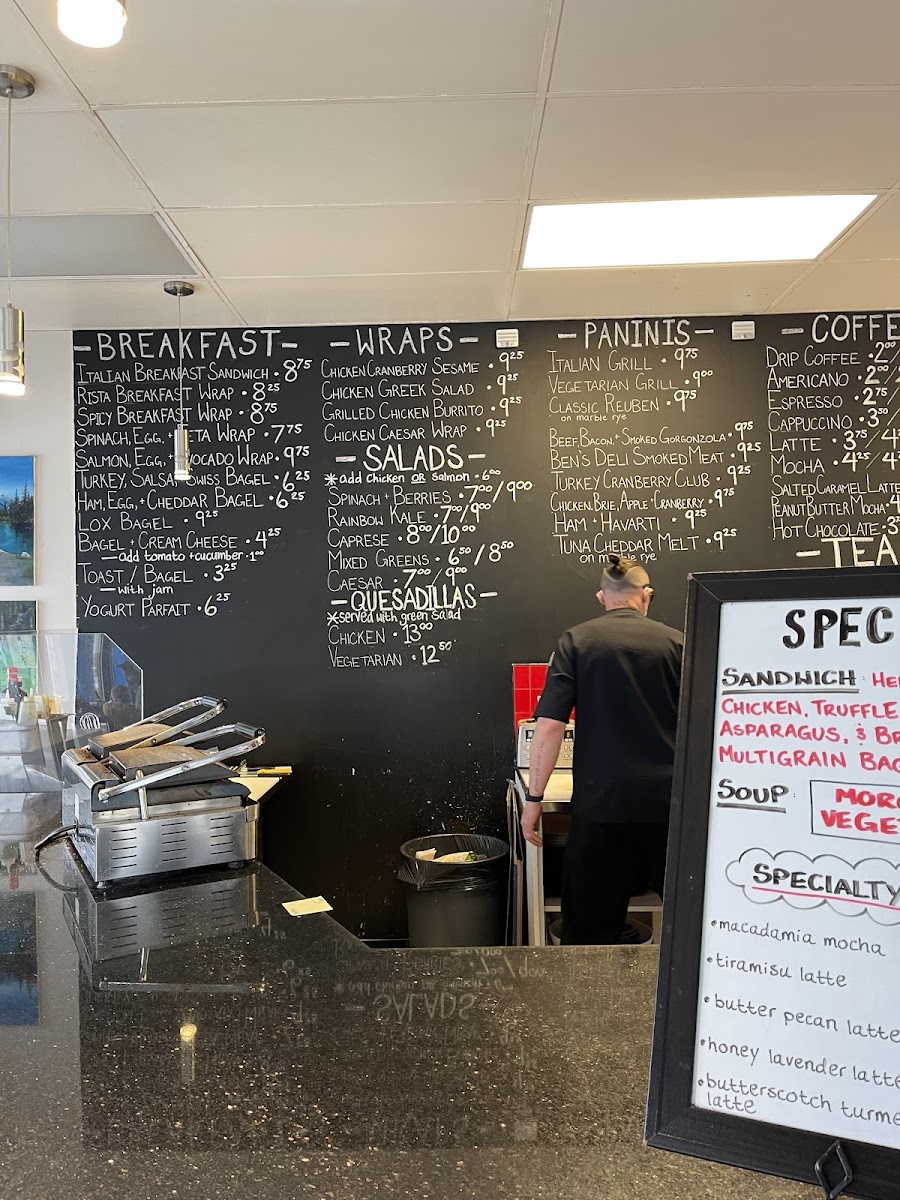 -BREAKFAST-
ITALIAN BREAKFAST SANDWICH • 8.75
RISTA BREAKFAST WRAP • 8.25
SPICY BREAKFAST WRAP • 8.75
SPINACH, EGG, + FETA WRAP • 7.75
SALMON, EGG, + AVOCADO WRAP • 9.75
TURKEY, SALSA, SWISS BAGEL • 6.25
HAM, EGG, + CHEDDAR BAGEL • 6.25
LOX BAGEL • 9.25
BAGEL + CREAM CHEESE • 4.25
— add tomato + cucumber • 1.00
TOAST / BAGEL • 3.25
— with jam
YOGURT PARFAIT • 6.25
-WRAPS-
CHICKEN CRANBERRY SESAME • 9.25
CHICKEN GREEK SALAD • 9.25
GRILLED CHICKEN BURRITO • 9.25
CHICKEN CAESAR WRAP • 9.25
-SALADS-
* add chicken OR salmon • 6.00
SPINACH + BERRIES • 7.00/9.00
RAINBOW KALE • 7.00/9.00
CAPRESE • 8.00/10.00
MIXED GREENS • 6.50/8.50
CAESAR • 7.00/9.00
-QUESADILLAS-
* served with green salad
CHICKEN • 13.00
VEGETARIAN • 12.50
-PANINIS-
ITALIAN GRILL • 9.75
VEGETARIAN GRILL • 9.00
CLASSIC REUBEN • 9.75
on marble rye
BEEF, BACON, + SMOKED GORGONZOLA • 9.75
BEN'S DELI SMOKED MEAT • 9.25
TURKEY CRANBERRY CLUB • 9.25
CHICKEN, BRIE, APPLE + CRANBERRY • 9.75
HAM + HAVARTI • 9.25
TUNA CHEDDAR MELT • 9.25
on marble rye
-COFFE
DRIP COFFEE • 2.00/
AMERICANO • 2.00/
ESPRESSO • 2.75
CAPPUCCINO • 3.50/
LATTE • 3.75/4
MOCHA • 4.25/4
SALTED CARAMEL LATTE
PEANUT BUTTER MOCHA • 4
HOT CHOCOLATE • 3.75
-TEA
SPEC
SANDWICH: HE
CHICKEN, TRUFFLE
ASPARAGUS, & BR
MULTIGRAIN BAG
SOUP: MORO
VEGET
SPECIALTY
• macadamia mocha
• tiramisu latte
• butter pecan latte
• honey lavender latte
• butterscotch turme
latte